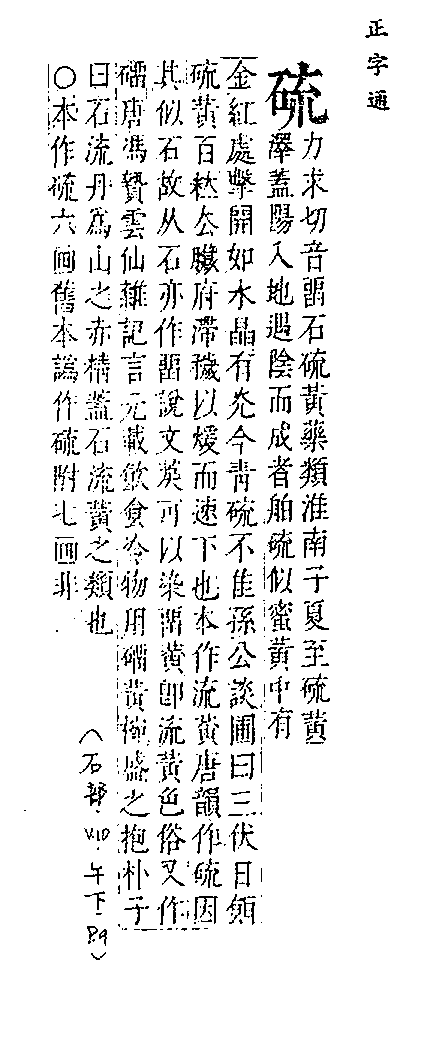 正字通
硫
力求切音留石硫黃藥類淮南子夏至硫黃
澤蓋陽入地遇陰而成者舶硫似蜜黃中有
金紅處擊開如水晶有光今青硫不佳孫公談圃曰三伏日頒
硫黃百粒公臟府滯穢以煖而速下也本作流黃唐韻作硫因
其似石故从石亦作留說文莫可以染留黃卽流黃色俗又作
磂唐馮贄雲仙雜記言元載飲食冷物用磂黃極盛之抱朴子
曰石流丹爲山之赤精蓋石流黃之類也
○本作硫六画舊本譌作硫附七画非
(石部 V.10 午下 P.9)